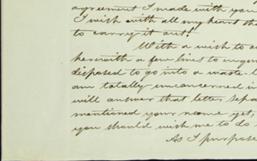 agreement I made with you
I wish with all my heart the
to carry it out!
With a wish to a
herewith a few lines to
disposed to go into a waste-
am totally unconcerned in
will answer that letter
mentioned your name yet,
you should wish me to do
As I purpose